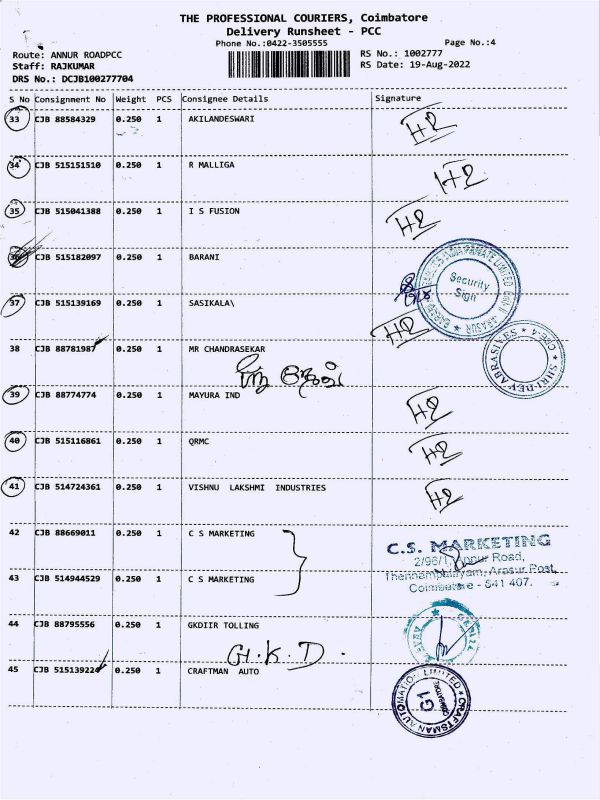 THE PROFESSIONAL COURIERS, Coimbatore
Delivery Runsheet - PCC
Phone No.:0422-3505555 Page No.:4
Route: ANNUR ROADPCC RS No.: 1002777
Staff: RAJKUMAR RS Date: 19-Aug-2022
DRS No.: DCJB100277704
S No Consignment No Weight PCS Consignee Details Signature
33 CJB 88584329 0.250 1 AKILANDESWARI H2
34 CJB 515151510 0.250 1 R MALLIGA H2
35 CJB 515041388 0.250 1 I S FUSION H2
36 CJB 515182097 0.250 1 BARANI
Security
Sign
37 CJB 515139169 0.250 1 SASIKALA\ H2
38 CJB 88781987 0.250 1 MR CHANDRASEKAR
39 CJB 88774774 0.250 1 MAYURA IND H2
40 CJB 515116861 0.250 1 QRMC H2
41 CJB 514724361 0.250 1 VISHNU LAKSHMI INDUSTRIES H2
42 CJB 88669011 0.250 1 C S MARKETING
C.S. MARKETING
Road,
Thennampalayam, Arasur Post,
Coimbatore - 641 407.
43 CJB 514944529 0.250 1 C S MARKETING
44 CJB 88795556 0.250 1 GKDIIR TOLLING
G.K.D.
45 CJB 515139220 0.250 1 CRAFTMAN AUTO
CRAFTSMAN AUTOMATION LIMITED
G1
COIMBATORE